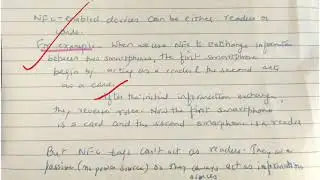 NFC-enabled devices can be either reader or
cards.
For example - When we use NFC to exchange information
between two smartphones, The first smartphone
begin by acting as a reader & the second acts
as a card.
After the initial information exchange
they reverse roles. Now the first smartphone
is a card and the second smartphone is a reader
But NFC tags can't act as reader. They are
passive (no power source) so they always act as information